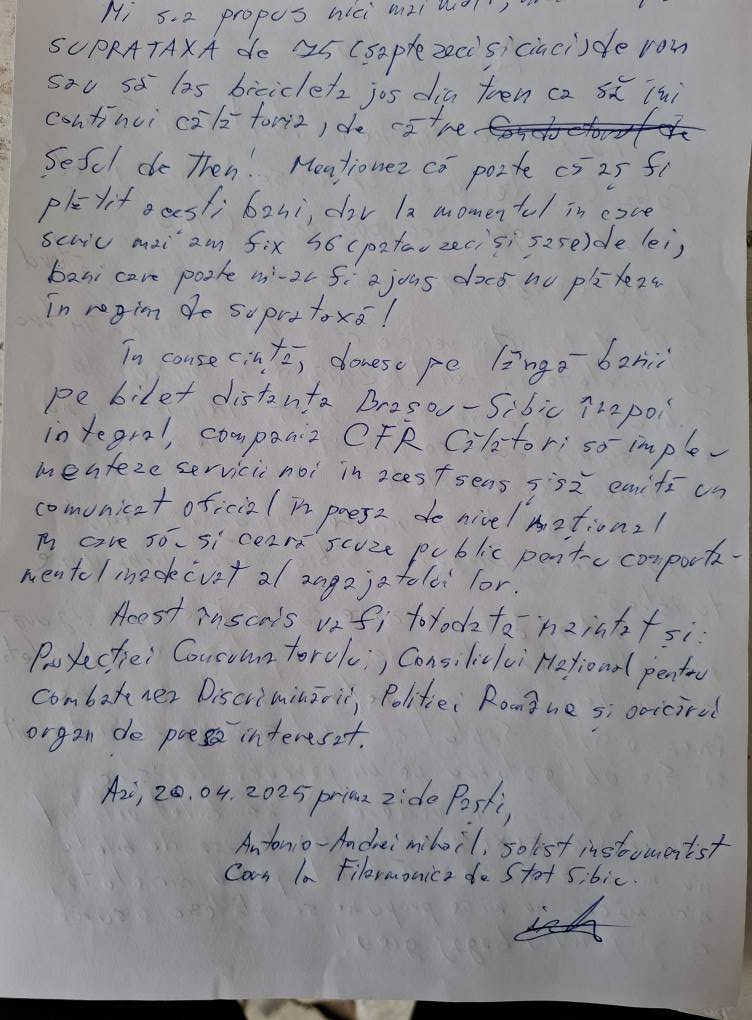 Mi s-a propus nici mai mult,
SUPRATAXA de 75 (șapte zeci și cinci) de ron
sau să las bicicleta jos din tren ca să îmi
continui călătoria, de către Conductorul de
Șeful de Tren! Menționez că poate că aș fi
plătit acești bani, dar la momentul în care
scriu mai am fix 46 (patru zeci și șase) de lei,
bani care poate mi-ar fi ajuns dacă nu plăteam
în regim de supra taxă!
În consecință, doresc pe lângă banii
pe bilet distanța Brașov-Sibiu înapoi
integral, compania CFR Călători să imple-
menteze servicii noi în acest sens și să emită un
comunicat oficial în presa de nivel național
în care să-și ceară scuze public pentru comporta-
mentul inadecvat al angajatului lor.
Acest înscris va fi totodată înaintat și:
Protecției Consumatorului, Consiliului Național pentru
Combaterea Discriminării, Poliției Române și oricărui
organ de presă interesat.
Azi, 20.04.2025 prima zi de Paști,
Antonio-Andrei Mihail, solist instrumentist
Corn la Filarmonica de Stat Sibiu.